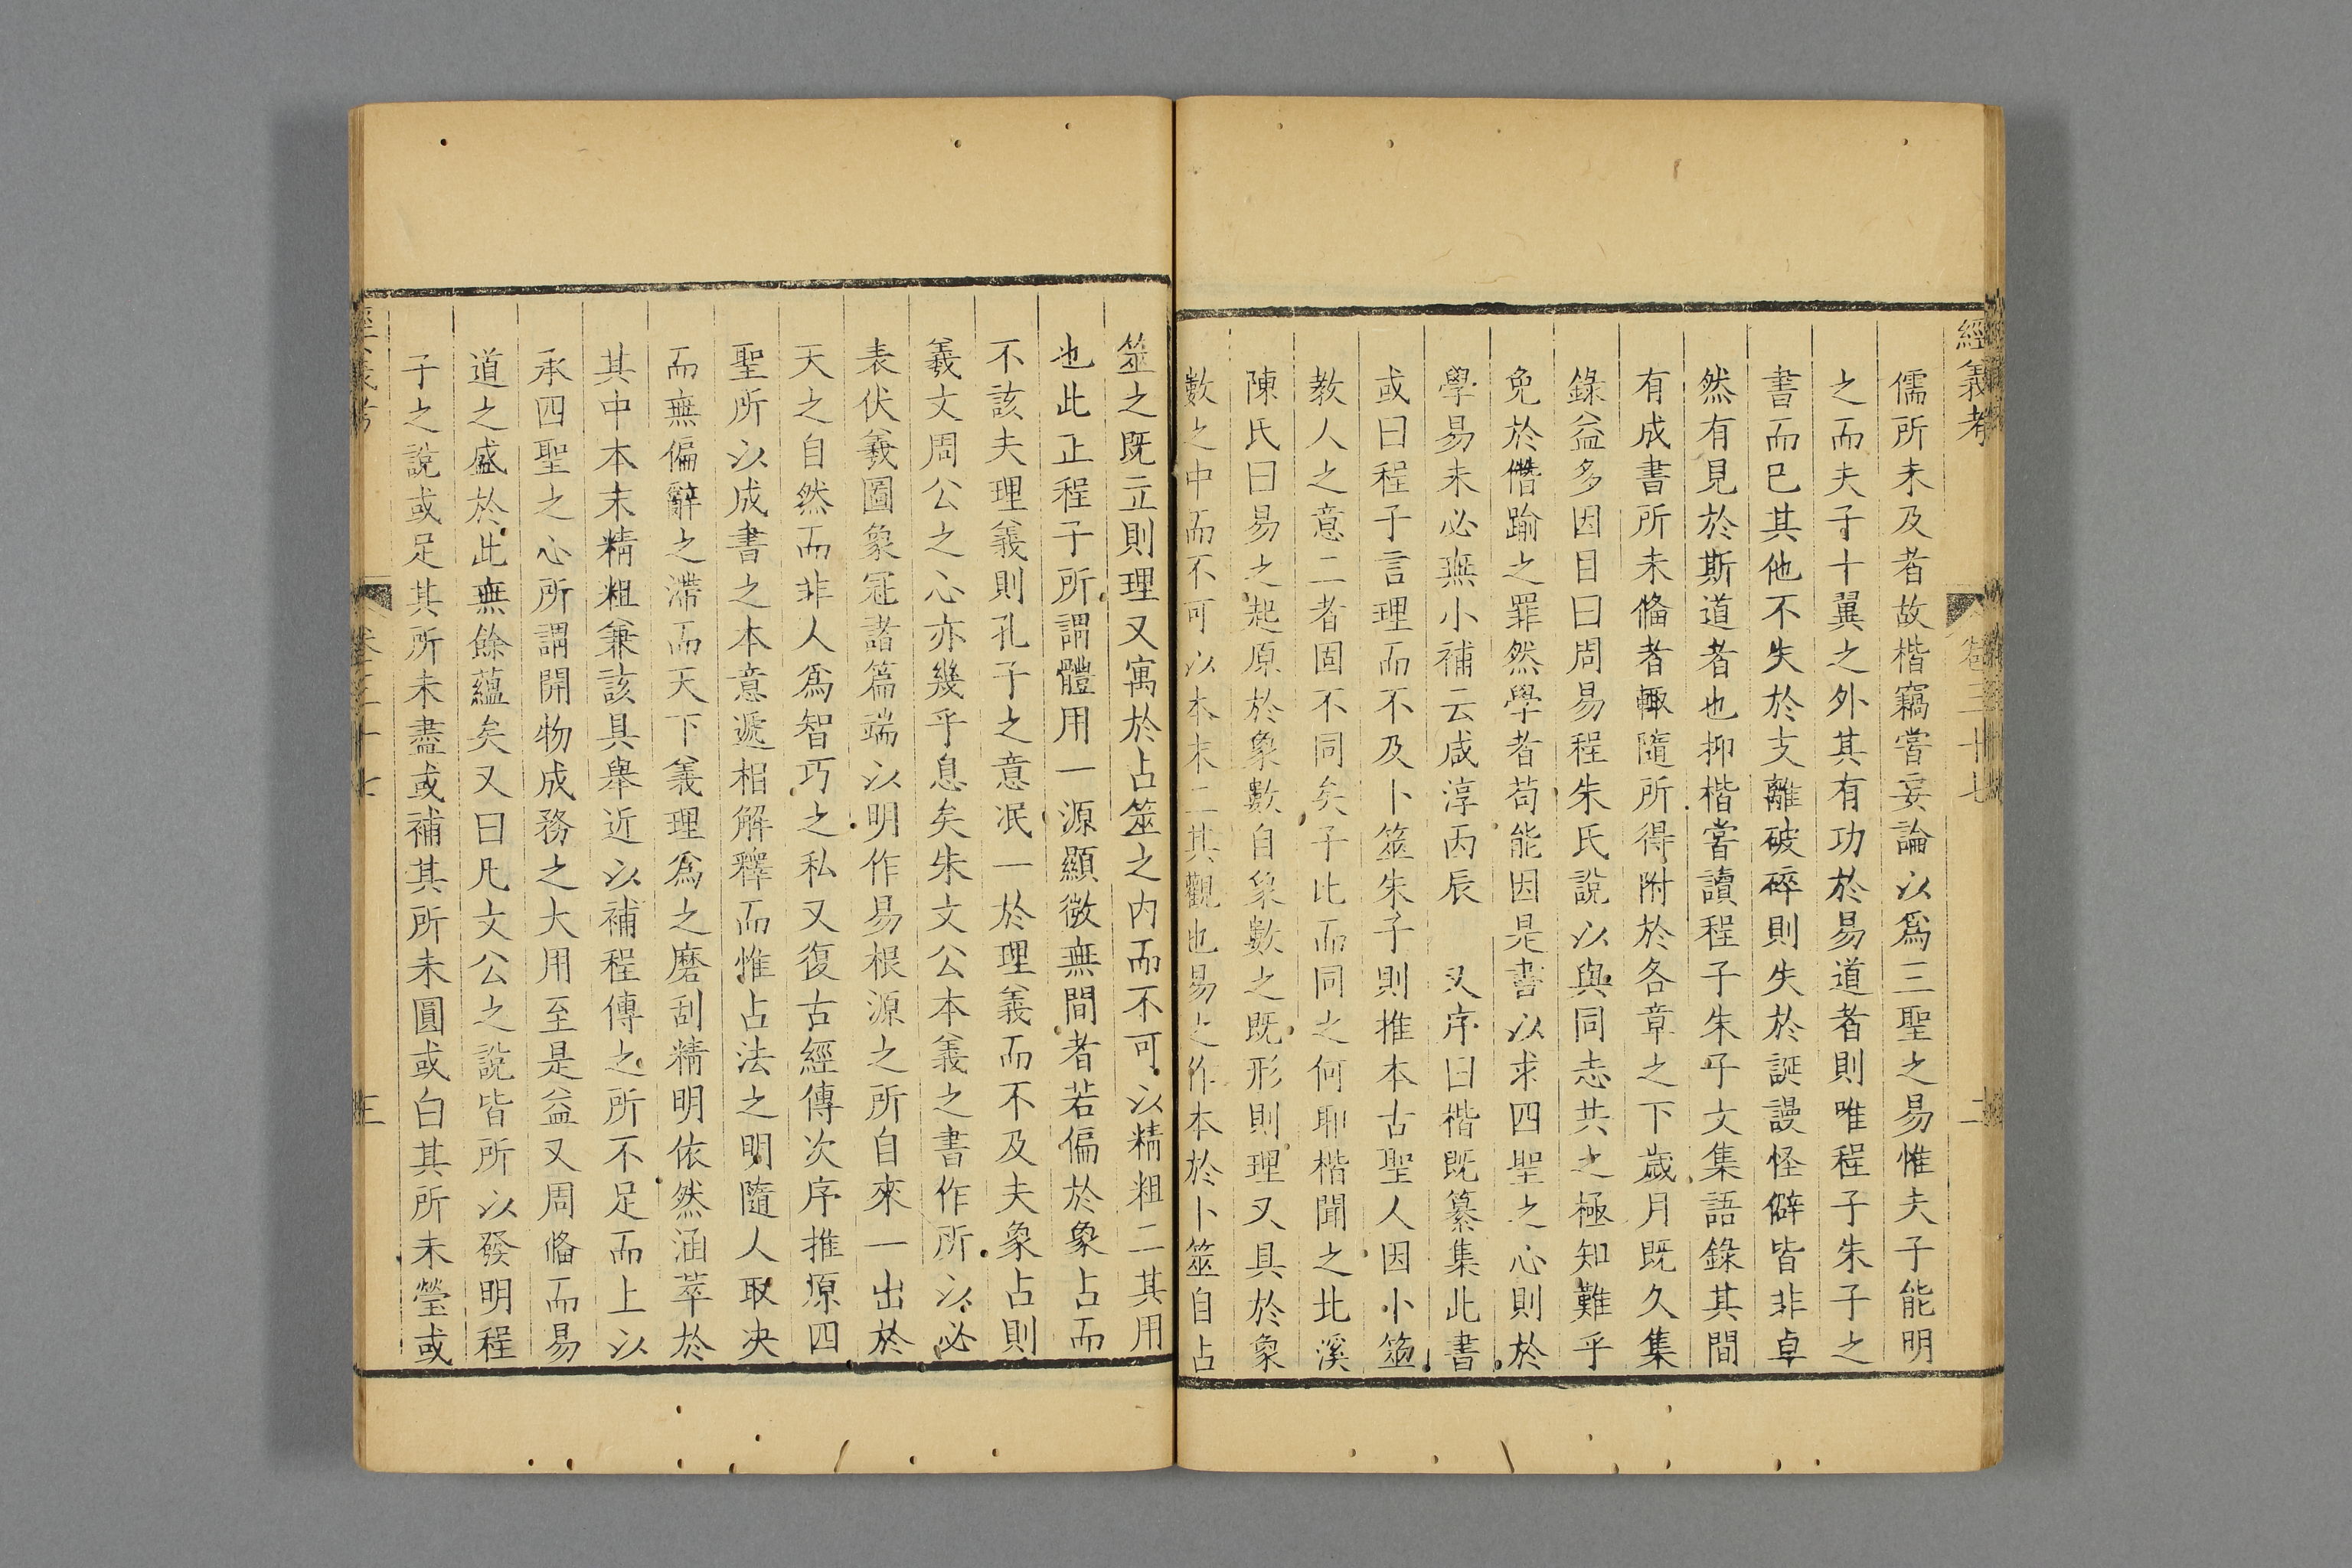 經義考
卷三十七
二
儒所未及者故楷竊嘗妄論以爲三聖之易惟夫子能明
之而夫子十翼之外其有功於易道者則唯程子朱子之
書而已其他不失於支離破碎則失於誕謾怪僻皆非卓
然有見於斯道者也抑楷嘗讀程子朱子文集語錄其間
有成書所未偹者輙隨所得附於各章之下歲月既久集
錄益多因目曰周易程朱氏說以與同志共之極知難乎
免於僭踰之罪然學者苟能因是書以求四聖之心則於
學易未必無小補云咸淳丙辰 又序曰楷既纂集此書
或曰程子言理而不及卜筮朱子則推本古聖人因卜筮
教人之意二者固不同矣子比而同之何耶楷聞之北溪
陳氏曰易之起原於象數自象數之既形則理又具於象
數之中而不可以本末二其觀也易之作本於卜筮自占
筮之既立則理又寓於占筮之内而不可以精粗二其用
也此正程子所謂體用一源顯微無間者若偏於象占而
不該夫理義則孔子之意泯一於理義而不及夫象占則
羲文周公之心亦幾乎息矣朱文公本義之書作所以必
表伏羲圖象冠諸篇端以明作易根源之所自來一出於
天之自然而非人爲智巧之私又復古經傳次序推原四
聖所以成書之本意遞相解釋而惟占法之明隨人取决
而無偏辭之滯而天下義理爲之磨刮精明依然涵萃於
其中本末精粗兼該具舉近以補程傳之所不足而上以
承四聖之心所謂開物成務之大用至是益又周偹而易
道之盛於此無餘蘊矣又曰凡文公之說皆所以發明程
子之說或足其所未盡或補其所未圓或白其所未瑩或
經義考
卷三十七
三